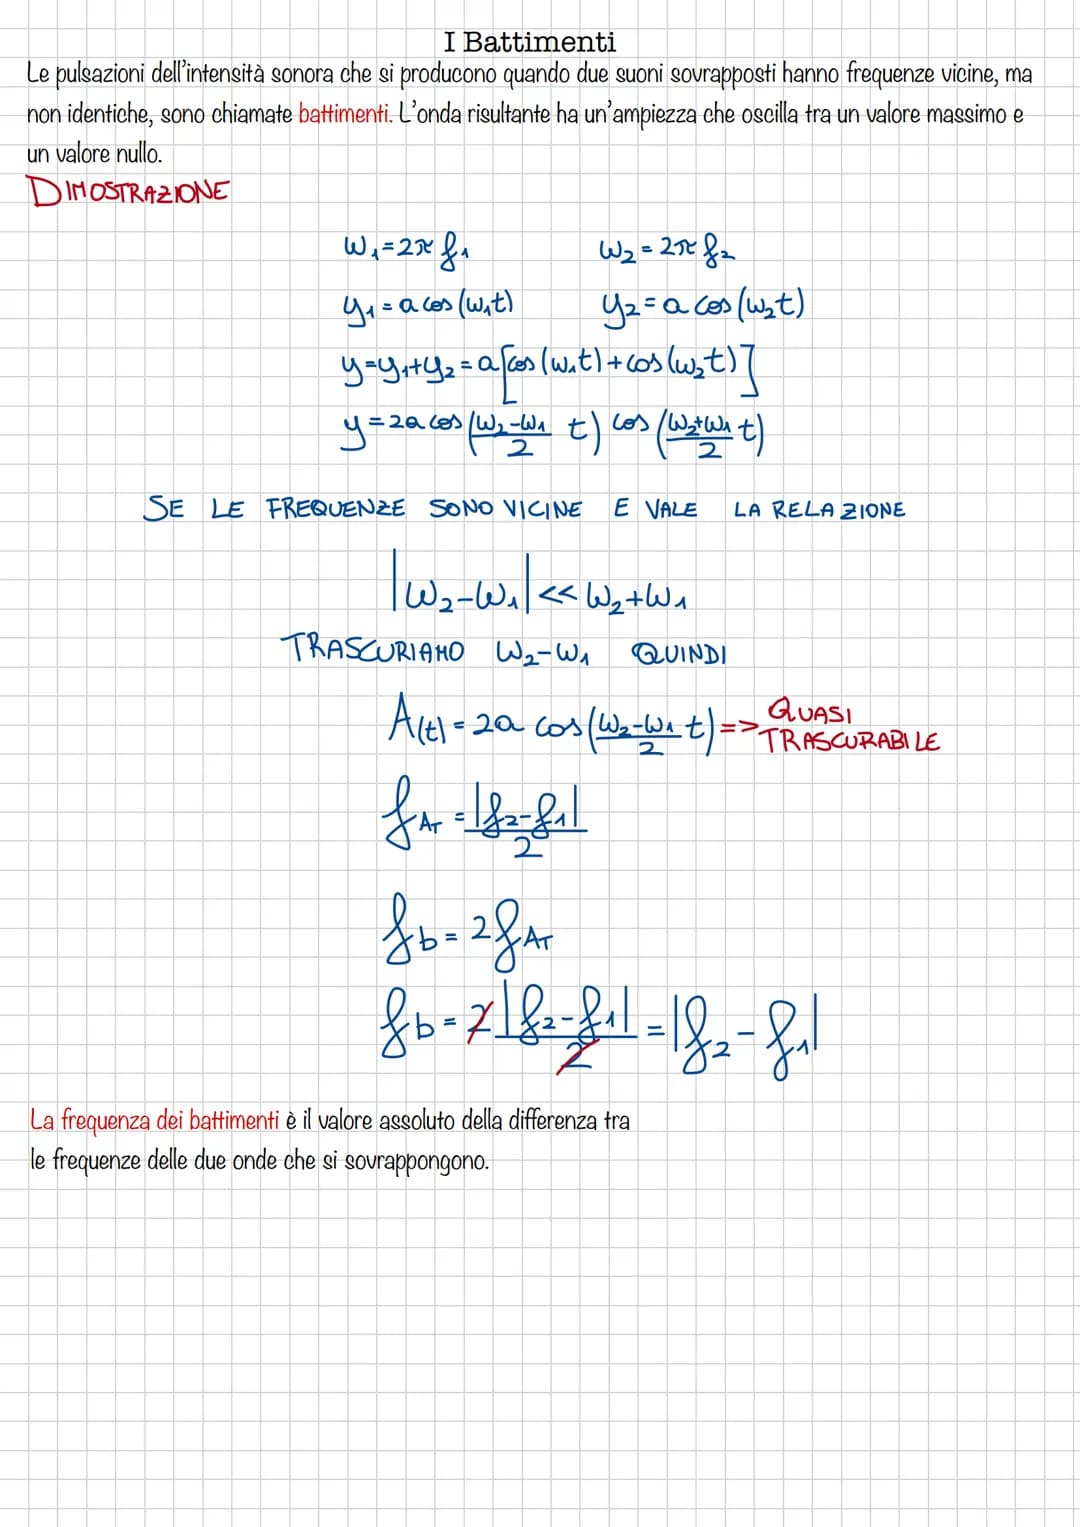 I Battimenti
Le pulsazioni dell'intensità sonora che si producono quando due suoni sovrapposti hanno frequenze vicine, ma
non identiche, sono chiamate battimenti. L'onda risultante ha un'ampiezza che oscilla tra un valore massimo e
un valore nullo.
DIMOSTRAZIONE
ω₁=2π f₁ ω₂=2π f₂
y₁=a cos(ω₁t) y₂=a cos(ω₂t)
y=y₁+y₂=a[cos(ω₁t)+cos(ω₂t)]
y=2a cos((ω₂-ω₁)/2 t) cos((ω₂+ω₁)/2 t)
SE LE FREQUENZE SONO VICINE E VALE LA RELAZIONE
|ω₂-ω₁|<<ω₂+ω₁
TRASCURIAMO ω₂-ω₁ QUINDI
A(t)=2a cos((ω₂-ω₁)/2 t)=> QUASI
TRASCURABILE
f_AT=|f₂-f₁|/2
f_b=2f_AT
f_b=2|f₂-f₁|/2=|f₂-f₁|
La frequenza dei battimenti è il valore assoluto della differenza tra
le frequenze delle due onde che si sovrappongono.